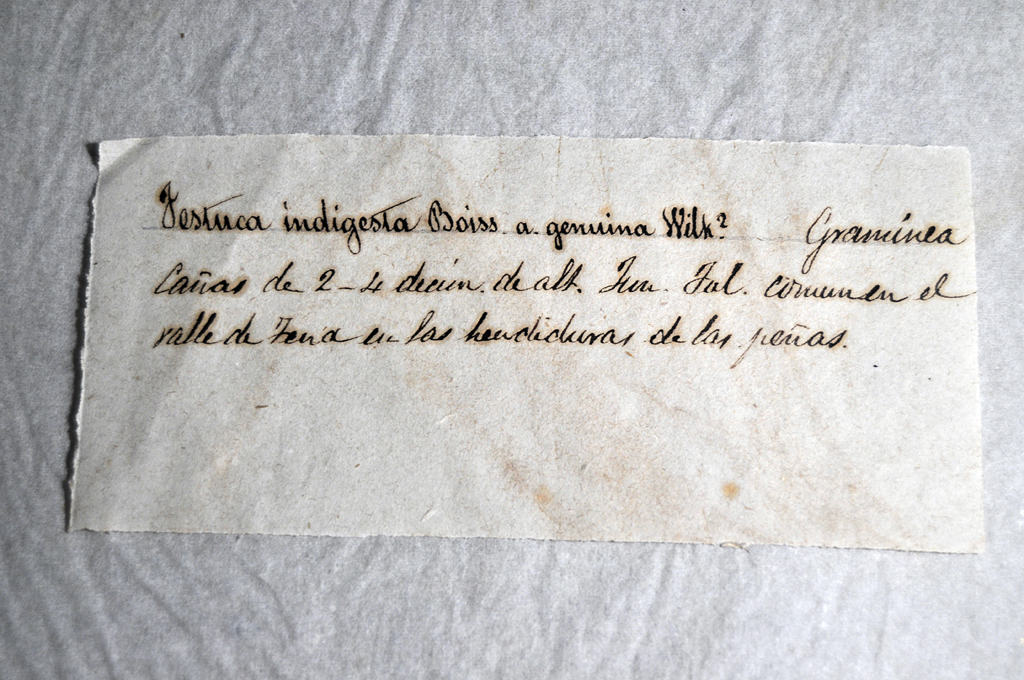 Festuca indigesta Boiss. a. genuina Wilk? Gramínea
Cañas de 2-4 decím. de alt. Jun. Jul. comun en el
valle de Tena en las hendiduras de las peñas.